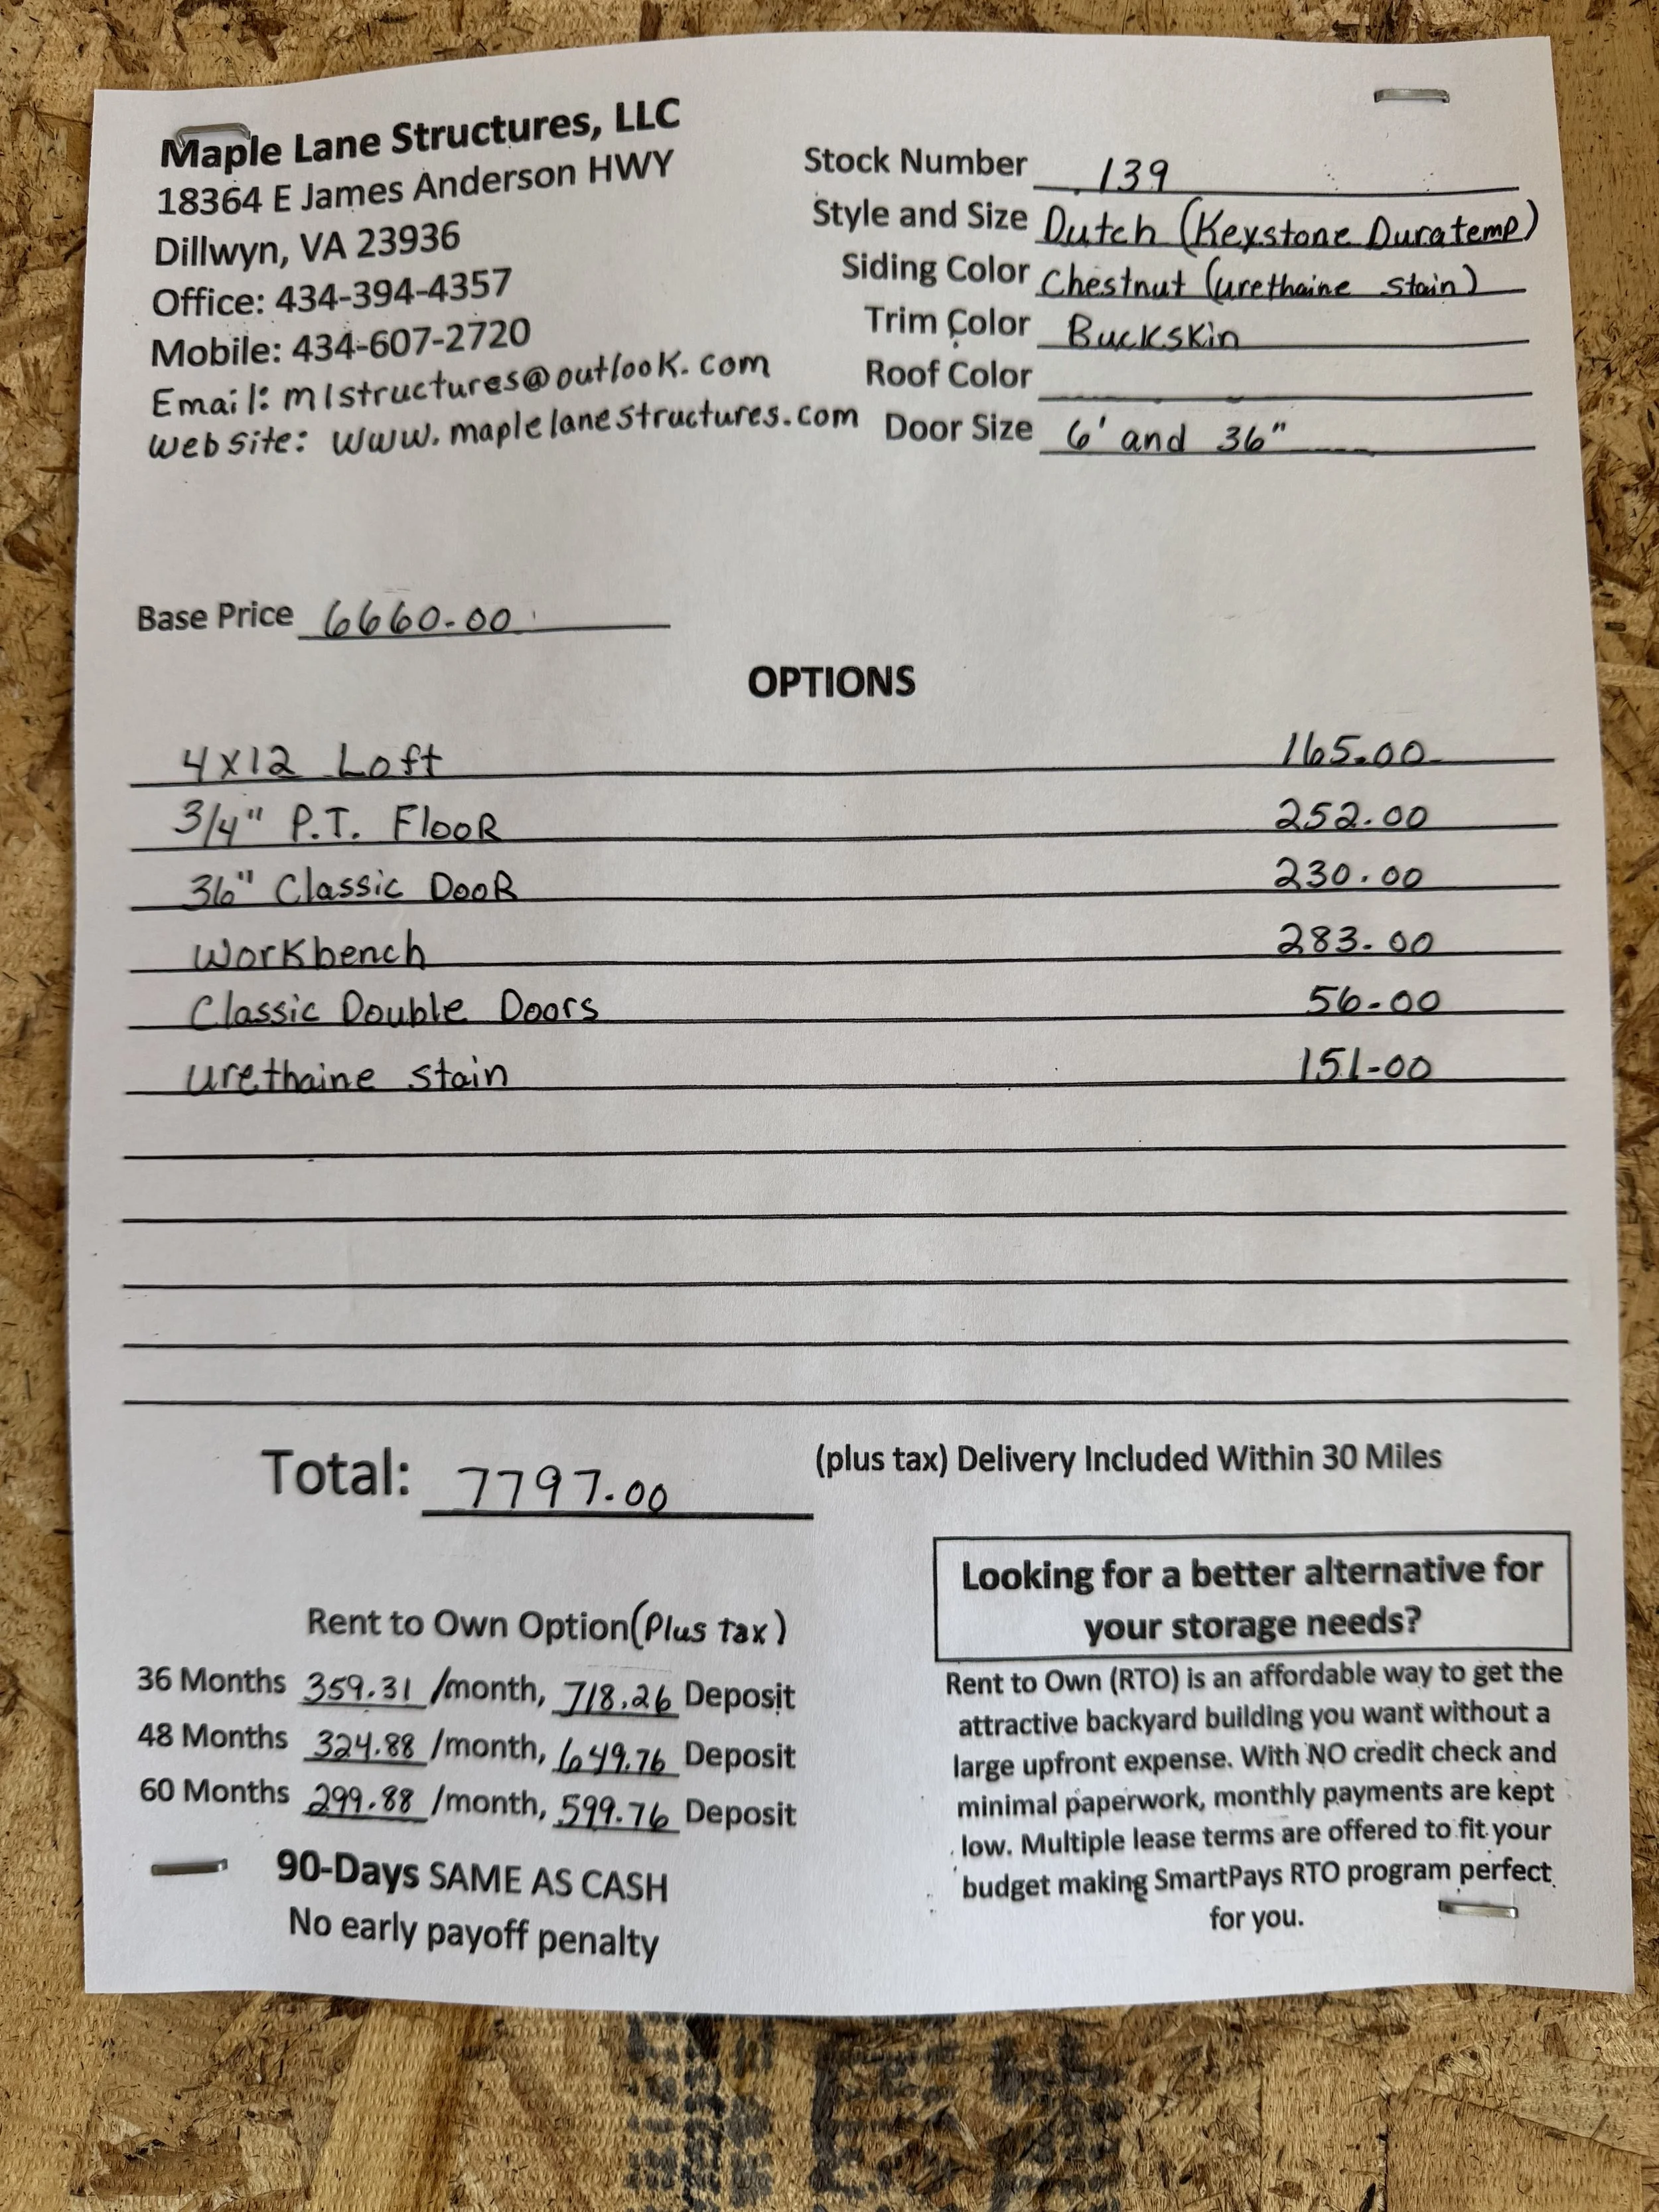 Maple Lane Structures, LLC
18364 E James Anderson HWY
Dillwyn, VA 23936
Office: 434-394-4357
Mobile: 434-607-2720
Email: mlstructures@outlook.com
Website: www.maplelanestructures.com
Stock Number 139
Style and Size Dutch (Keystone Duratemp)
Siding Color Chestnut (urethaine stain)
Trim Color Buckskin
Roof Color
Door Size 6' and 36"
Base Price 6660.00
OPTIONS
4x12 Loft 165.00
3/4" P.T. Floor 252.00
36" Classic Door 230.00
Workbench 283.00
Classic Double Doors 56.00
urethaine stain 151-00
Total: 7797.00 (plus tax) Delivery Included Within 30 Miles
Rent to Own Option (Plus tax)
36 Months 359.31 /month, 718.26 Deposit
48 Months 324.88 /month, 649.76 Deposit
60 Months 299.88 /month, 599.76 Deposit
90-Days SAME AS CASH
No early payoff penalty
Looking for a better alternative for
your storage needs?
Rent to Own (RTO) is an affordable way to get the
attractive backyard building you want without a
large upfront expense. With NO credit check and
minimal paperwork, monthly payments are kept
low. Multiple lease terms are offered to fit your
budget making SmartPays RTO program perfect
for you.